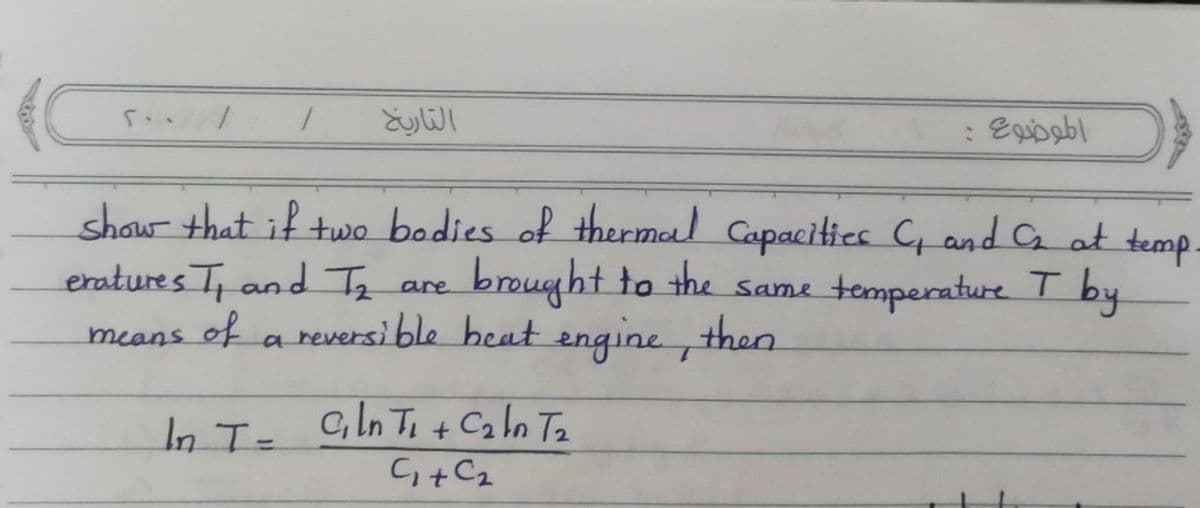 الموضوع : التاريخ / / ٢٠٠
show that if two bodies of thermal Capacities C₁ and C₂ at temp-
eratures T₁ and T₂ are brought to the same temperature T by
means of a reversible heat engine, then
ln T = C₁ ln T₁ + C₂ ln T₂
C₁ + C₂